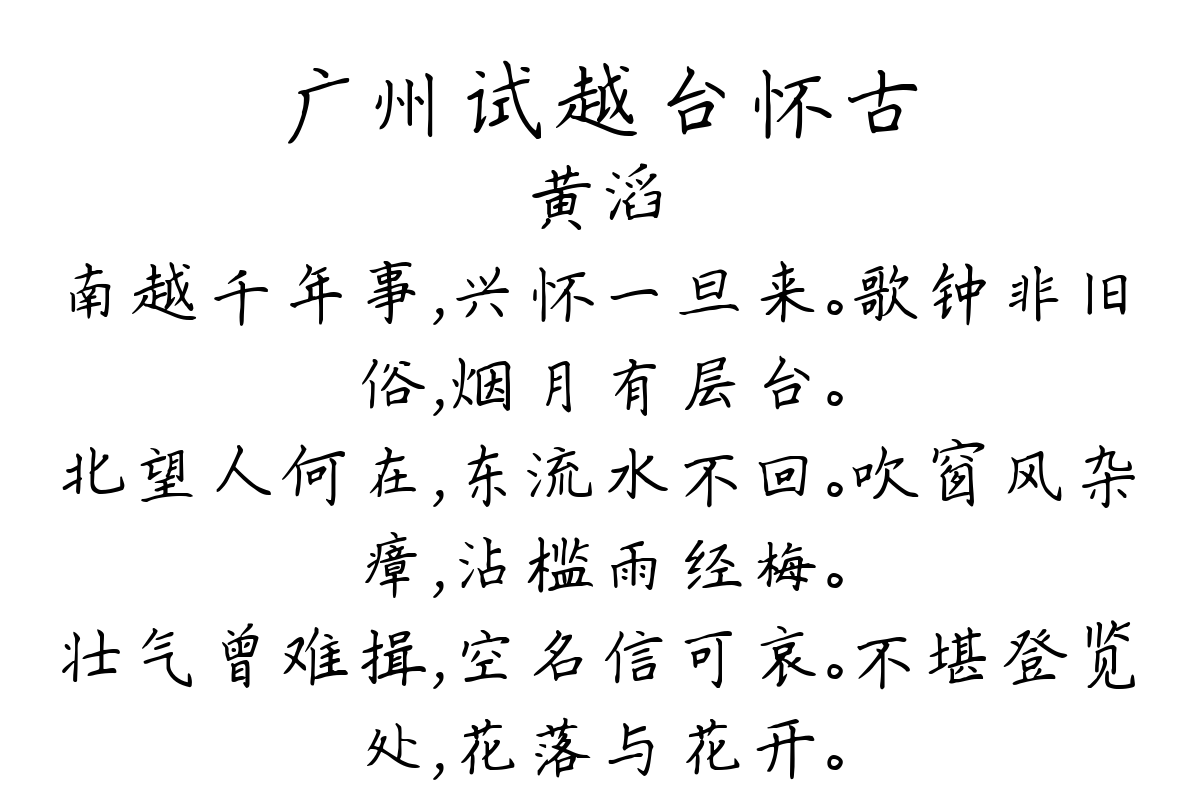 广州试越台怀古
黄滔
南越千年事,兴怀一旦来。歌钟非旧
俗,烟月有层台。
北望人何在,东流水不回。吹窗风杂
瘴,沾槛雨经梅。
壮气曾难揖,空名信可哀。不堪登览
处,花落与花开。